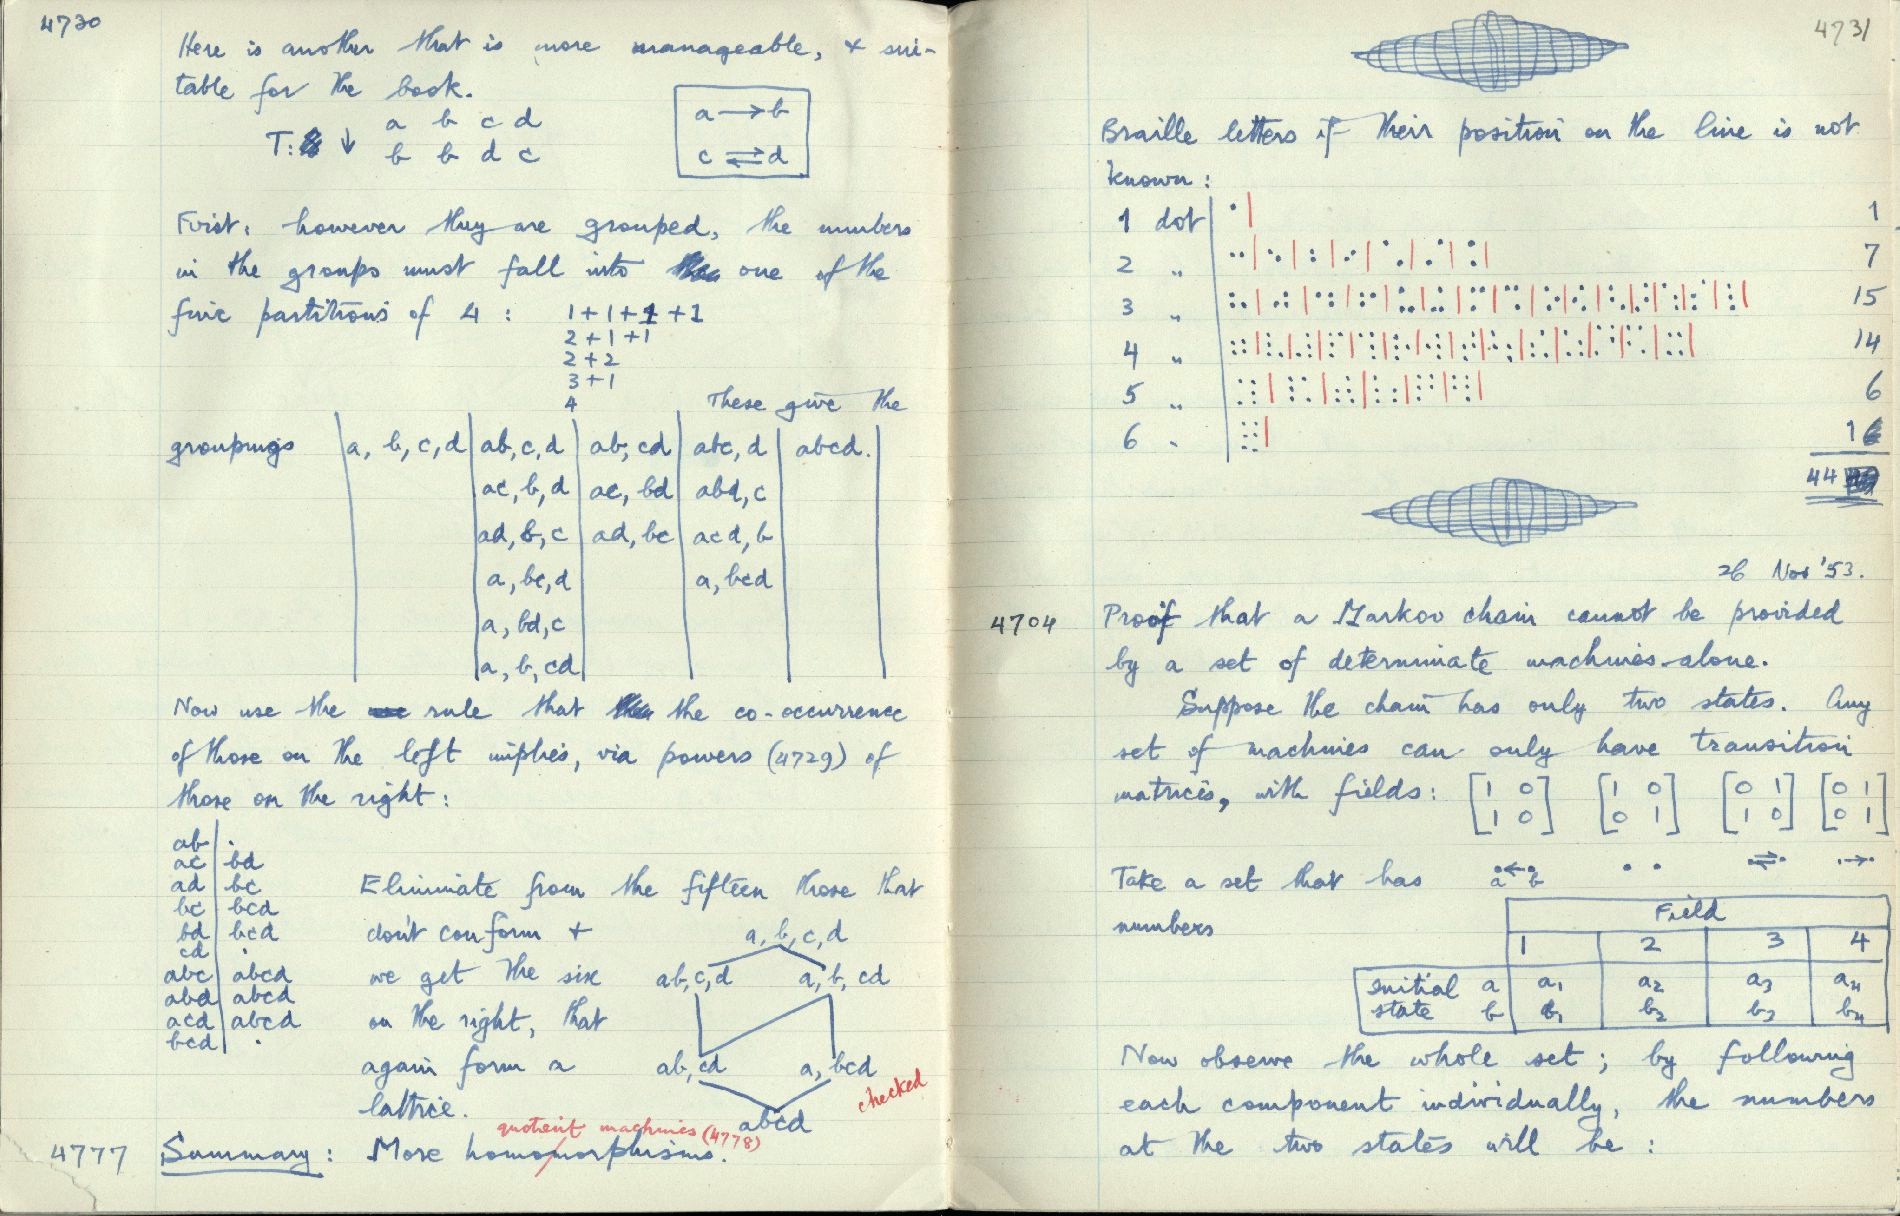 4730
Here is another that is more manageable, + sui-
table for the book.
T: ↓ a b c d
b b d c
a → b
c ⇌ d
First: however they are grouped, the numbers
in the groups must fall into one of the
five partitions of 4 : 1+1+1+1
2+1+1
2+2
3+1
4
These give the
groupings a, b, c, d | ab, c, d | ab, cd | abc, d | abcd.
ac, b, d | ac, bd | abd, c
ad, b, c | ad, bc | acd, b
a, bc, d | a, bcd
a, bd, c
a, b, cd
Now use the rule that the co-occurrence
of those on the left implies, via powers (4729) of
those on the right:
ab | .
ac | bd
ad | bc
bc | bcd
bd | bcd
cd | .
abc | abcd
abd | abcd
acd | abcd
bcd | .
Eliminate from the fifteen those that
don't conform +
we get the six
on the right, that
again form a
lattice.
a, b, c, d
ab, c, d a, b, cd
ab, cd a, bcd
abcd
checked
quotient machines (4778)
4777 Summary: More homomorphisms.
4731
Braille letters if their position on the line is not
known:
1 dot 1
2 " 7
3 " 15
4 " 14
5 " 6
6 " 1
44
26 Nov '53.
4704 Proof that a Markov chain cannot be provided
by a set of determinate machines alone.
Suppose the chain has only two states. Any
set of machines can only have transition
matrices, with fields: [1 0 [1 0 [0 1 [0 1
1 0] 0 1] 1 0] 0 1]
Take a set that has a ← b . . ⇌ →
numbers
Field
1 2 3 4
initial a a₁ a₂ a₃ a₄
state b b₁ b₂ b₃ b₄
Now observe the whole set; by following
each component individually, the numbers
at the two states will be :